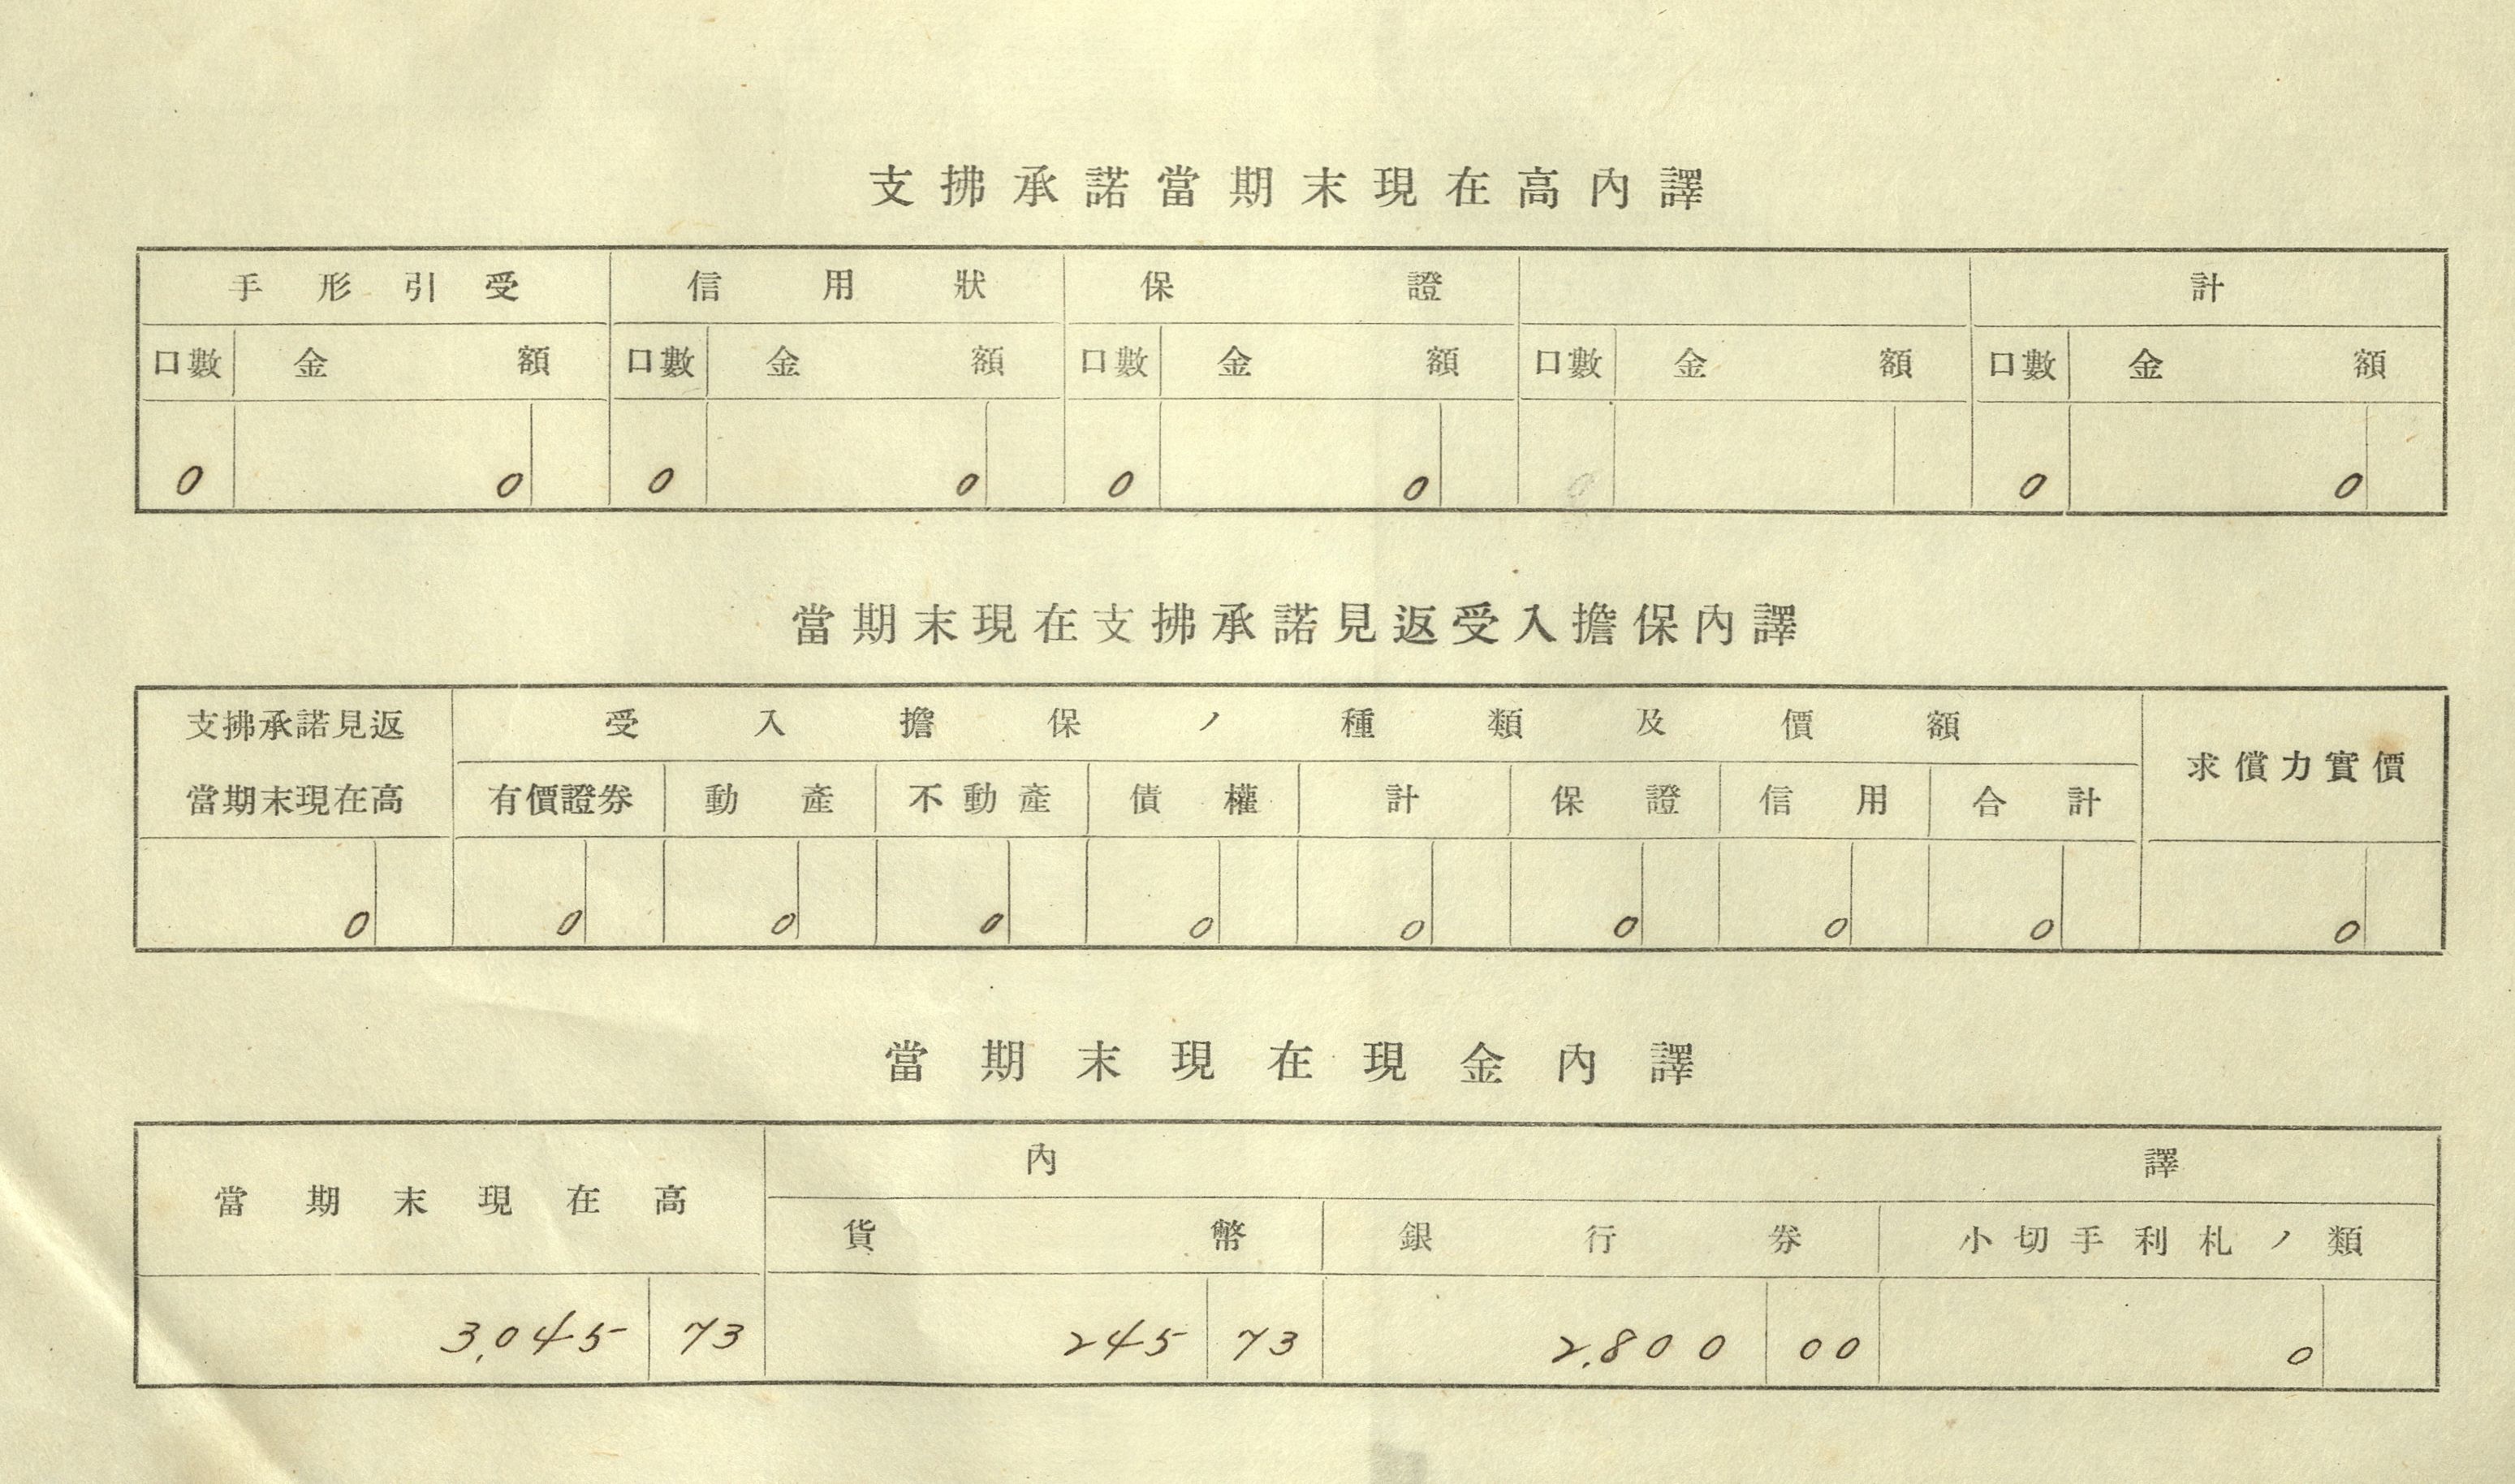 支拂承諾當期末現在高內譯
手形引受 信用狀 保證 計
口數 金額 口數 金額 口數 金額 口數 金額 口數 金額
0 0 0 0 0 0 0 0
當期末現在支拂承諾見返受入擔保內譯
支拂承諾見返 受入擔保ノ種類及價額
求償力實價
當期末現在高 有價證券 動產 不動產 債權 計 保證 信用 合計
0 0 0 0 0 0 0 0 0 0
當期末現在現金內譯
內譯
當期末現在高
貨幣 銀行券 小切手利札ノ類
3,045 73 245 73 2,800 00 0